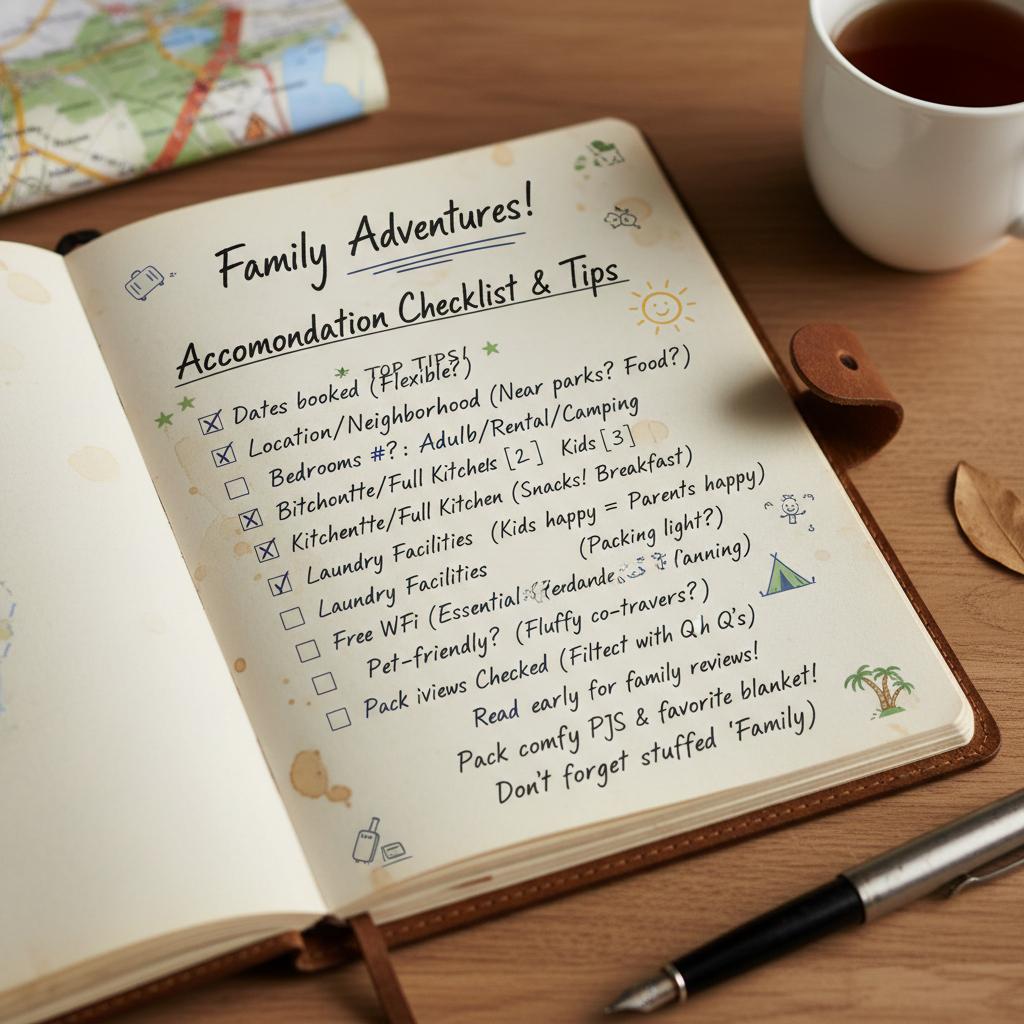 Family Adventures!
Accomondation Checklist & Tips
TOP TIPS!
Dates booked (Flexible?)
Location/Neighborhood (Near parks? Food?)
Bedrooms #?: Adulb/Rental/Camping
Bitchontte/Full Kitchels [2] Kids [3]
Kitchentte/Full Kitchen (Snacks! Breakfast)
Laundry Facilities (Kids happy = Parents happy)
Laundry Facilities (Packing light?)
Free WFi (Essential
Pet-friendly? (Fluffy co-travers?)
Pack iviews Checked (Filtect with Qh Q's)
Read early for family reviews!
Pack comfy PJS & favorite blanket!
Don't forget stuffed 'Family)